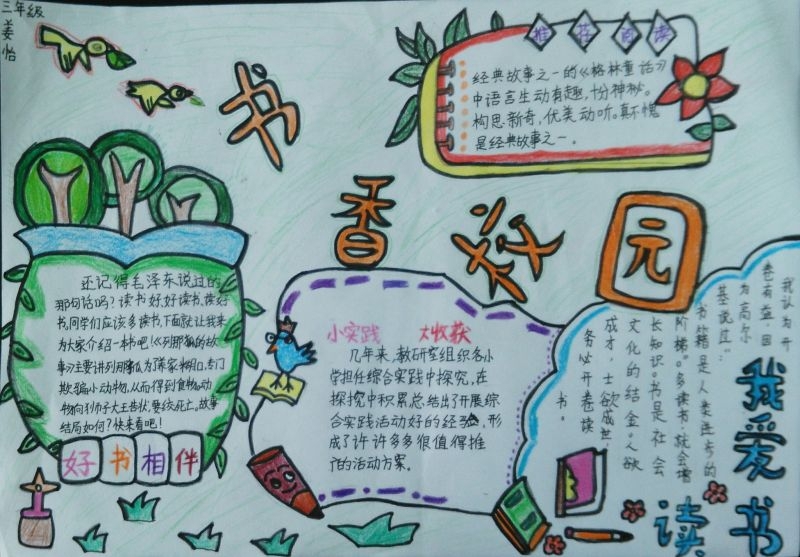 三年级
姜怡
书香校园
推荐阅读
经典故事之一的《格林童话》
中语言生动有趣,十分神秘。
构思新奇,优美动听。真不愧
是经典故事之一。
还记得毛泽东说过的
那句话吗?读书好,好读书,读好
书,同学们应该多读书,下面就让我来
为大家介绍一本书吧!《列那狐的故
事》主要讲列用
欺骗小动物,从而得到食物。动
物向狮子大王告状,要绞死它。故事
结局如何?快来看吧!
好书相伴
小实践 大收获
几年来,教研室组织各小
学担任综合实践中探究,在
探究中积累总结出了开展综
合实践活动好的经验,形
成了许许多多很值得推
广的活动方案。
我认为开
卷有益,因
为高尔
基说过:"
书籍是人类进步的
阶梯"多读书,就会增
长知识。书是社会
文化的结金。人欲
成才,士欲成世,
务必开卷读
书。
我爱
读书